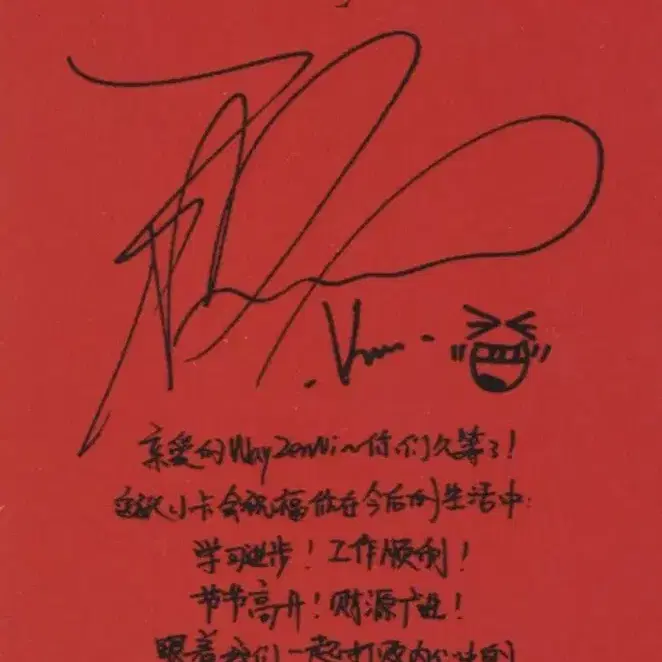 .Kun.
亲爱的WayZenNi~你们久等了！
这张小卡会祝福你在今后的生活中：
学习进步！工作顺利！
节节高升！财源广进！
跟着我们一起